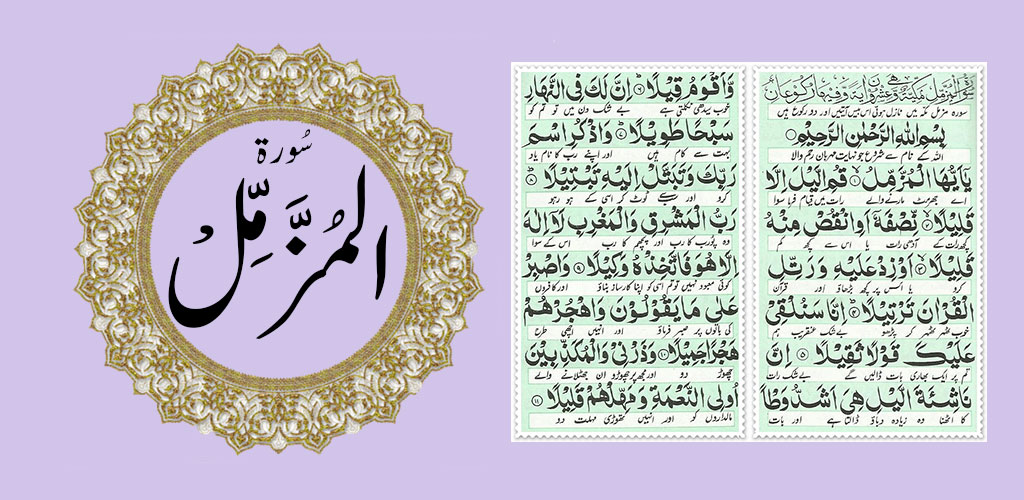 سُورة
المُزَّمِّل
سُوْرَةُ الْمُزَّمِّلِ مَكِّيَّةٌ وَّهِيَ عِشْرُوْنَ اٰيَةً وَّفِيْهَا رُكُوْعَانِ
سورہ مزمل مکہ میں نازل ہوئی اس میں بیس آیتیں اور دو رکوع ہیں
بِسْمِ اللّٰهِ الرَّحْمٰنِ الرَّحِيْمِ
اللہ کے نام سے شروع جو نہایت مہربان رحم والا
يٰۤاَيُّهَا الْمُزَّمِّلُ ۱ قُمِ الَّيْلَ اِلَّا
اے جھرمٹ مارنے والے رات میں قیام فرما سوا
قَلِيْلًا ۲ نِّصْفَهٗۤ اَوِ انْقُصْ مِنْهُ
کچھ رات کے آدھی رات یا اس سے کچھ کم
قَلِيْلًا ۳ اَوْ زِدْ عَلَيْهِ وَ رَتِّلِ
کرو یا اس پر کچھ بڑھاؤ اور قرآن
الْقُرْاٰنَ تَرْتِيْلًا ۴ اِنَّا سَنُلْقِيْ
خوب ٹھہر ٹھہر کر پڑھو بے شک عنقریب ہم
عَلَيْكَ قَوْلًا ثَقِيْلًا ۵ اِنَّ
تم پر ایک بھاری بات ڈالیں گے بے شک رات
نَاشِئَةَ الَّيْلِ هِيَ اَشَدُّ وَطْاً
کا اٹھنا وہ زیادہ دباؤ ڈالتا ہے اور بات
وَّاَقْوَمُ قِيْلًا ۶ اِنَّ لَكَ فِي النَّهَارِ
خوب سیدھی نکلتی ہے بے شک دن میں تو تم کو
سَبْحًا طَوِيْلًا ۷ وَاذْكُرِ اسْمَ
بہت سے کام ہیں اور اپنے رب کا نام یاد
رَبِّكَ وَتَبَتَّلْ اِلَيْهِ تَبْتِيْلًا ۸
کرو اور سب سے ٹوٹ کر اسی کے ہو رہو
رَبُّ الْمَشْرِقِ وَالْمَغْرِبِ لَاۤ اِلٰهَ
وہ پورب کا رب اور پچھم کا رب اس کے سوا
اِلَّا هُوَ فَاتَّخِذْهُ وَكِيْلًا ۹ وَاصْبِرْ
کوئی معبود نہیں تو تم اسی کو اپنا کارساز بناؤ اور کافروں
عَلٰى مَا يَقُوْلُوْنَ وَاهْجُرْهُمْ
کی باتوں پر صبر فرماؤ اور انہیں اچھی طرح
هَجْرًا جَمِيْلًا ۱۰ وَذَرْنِيْ وَالْمُكَذِّبِيْنَ
چھوڑ دو اور مجھ پر چھوڑو ان جھٹلانے والے
اُولِي النَّعْمَةِ وَمَهِّلْهُمْ قَلِيْلًا ۱۱
مالداروں کو اور انہیں تھوڑی مہلت دو